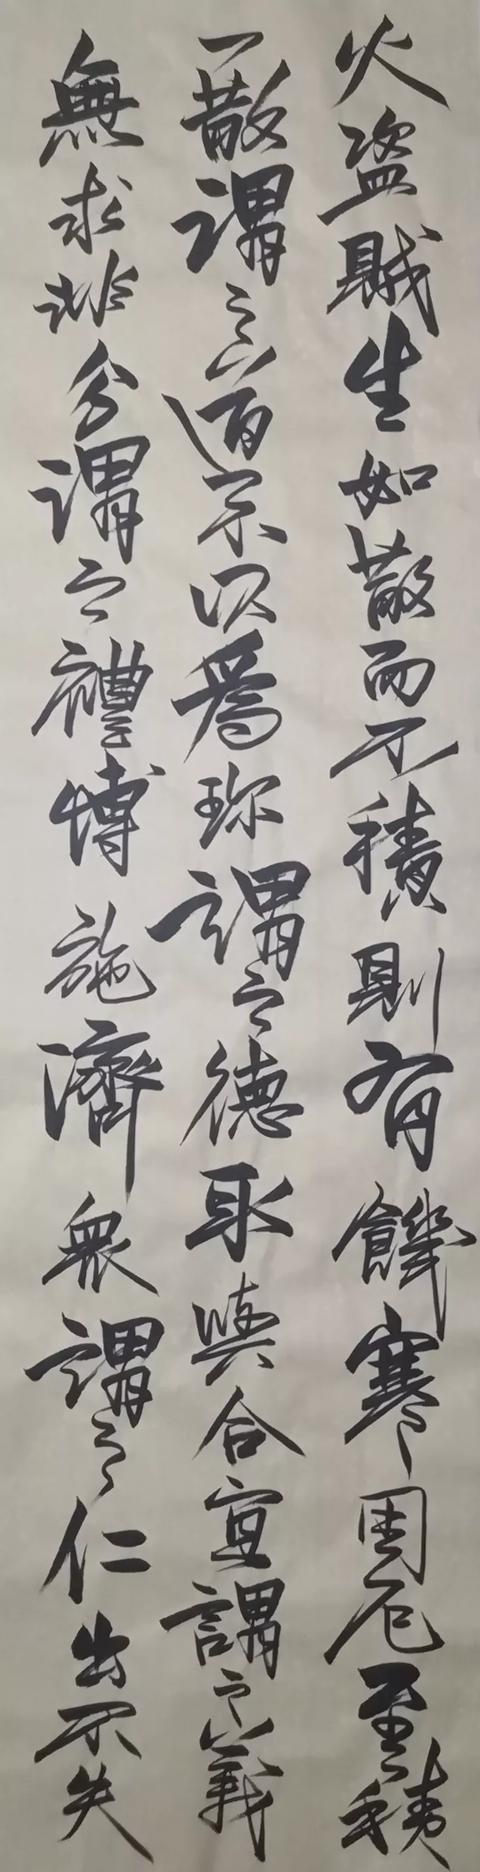 火盗賊生如散而不積則有饑寒困厄至積
一散謂之道不以爲珍謂之德取與合宜謂之義
無求非分謂之禮博施濟衆謂之仁出不失